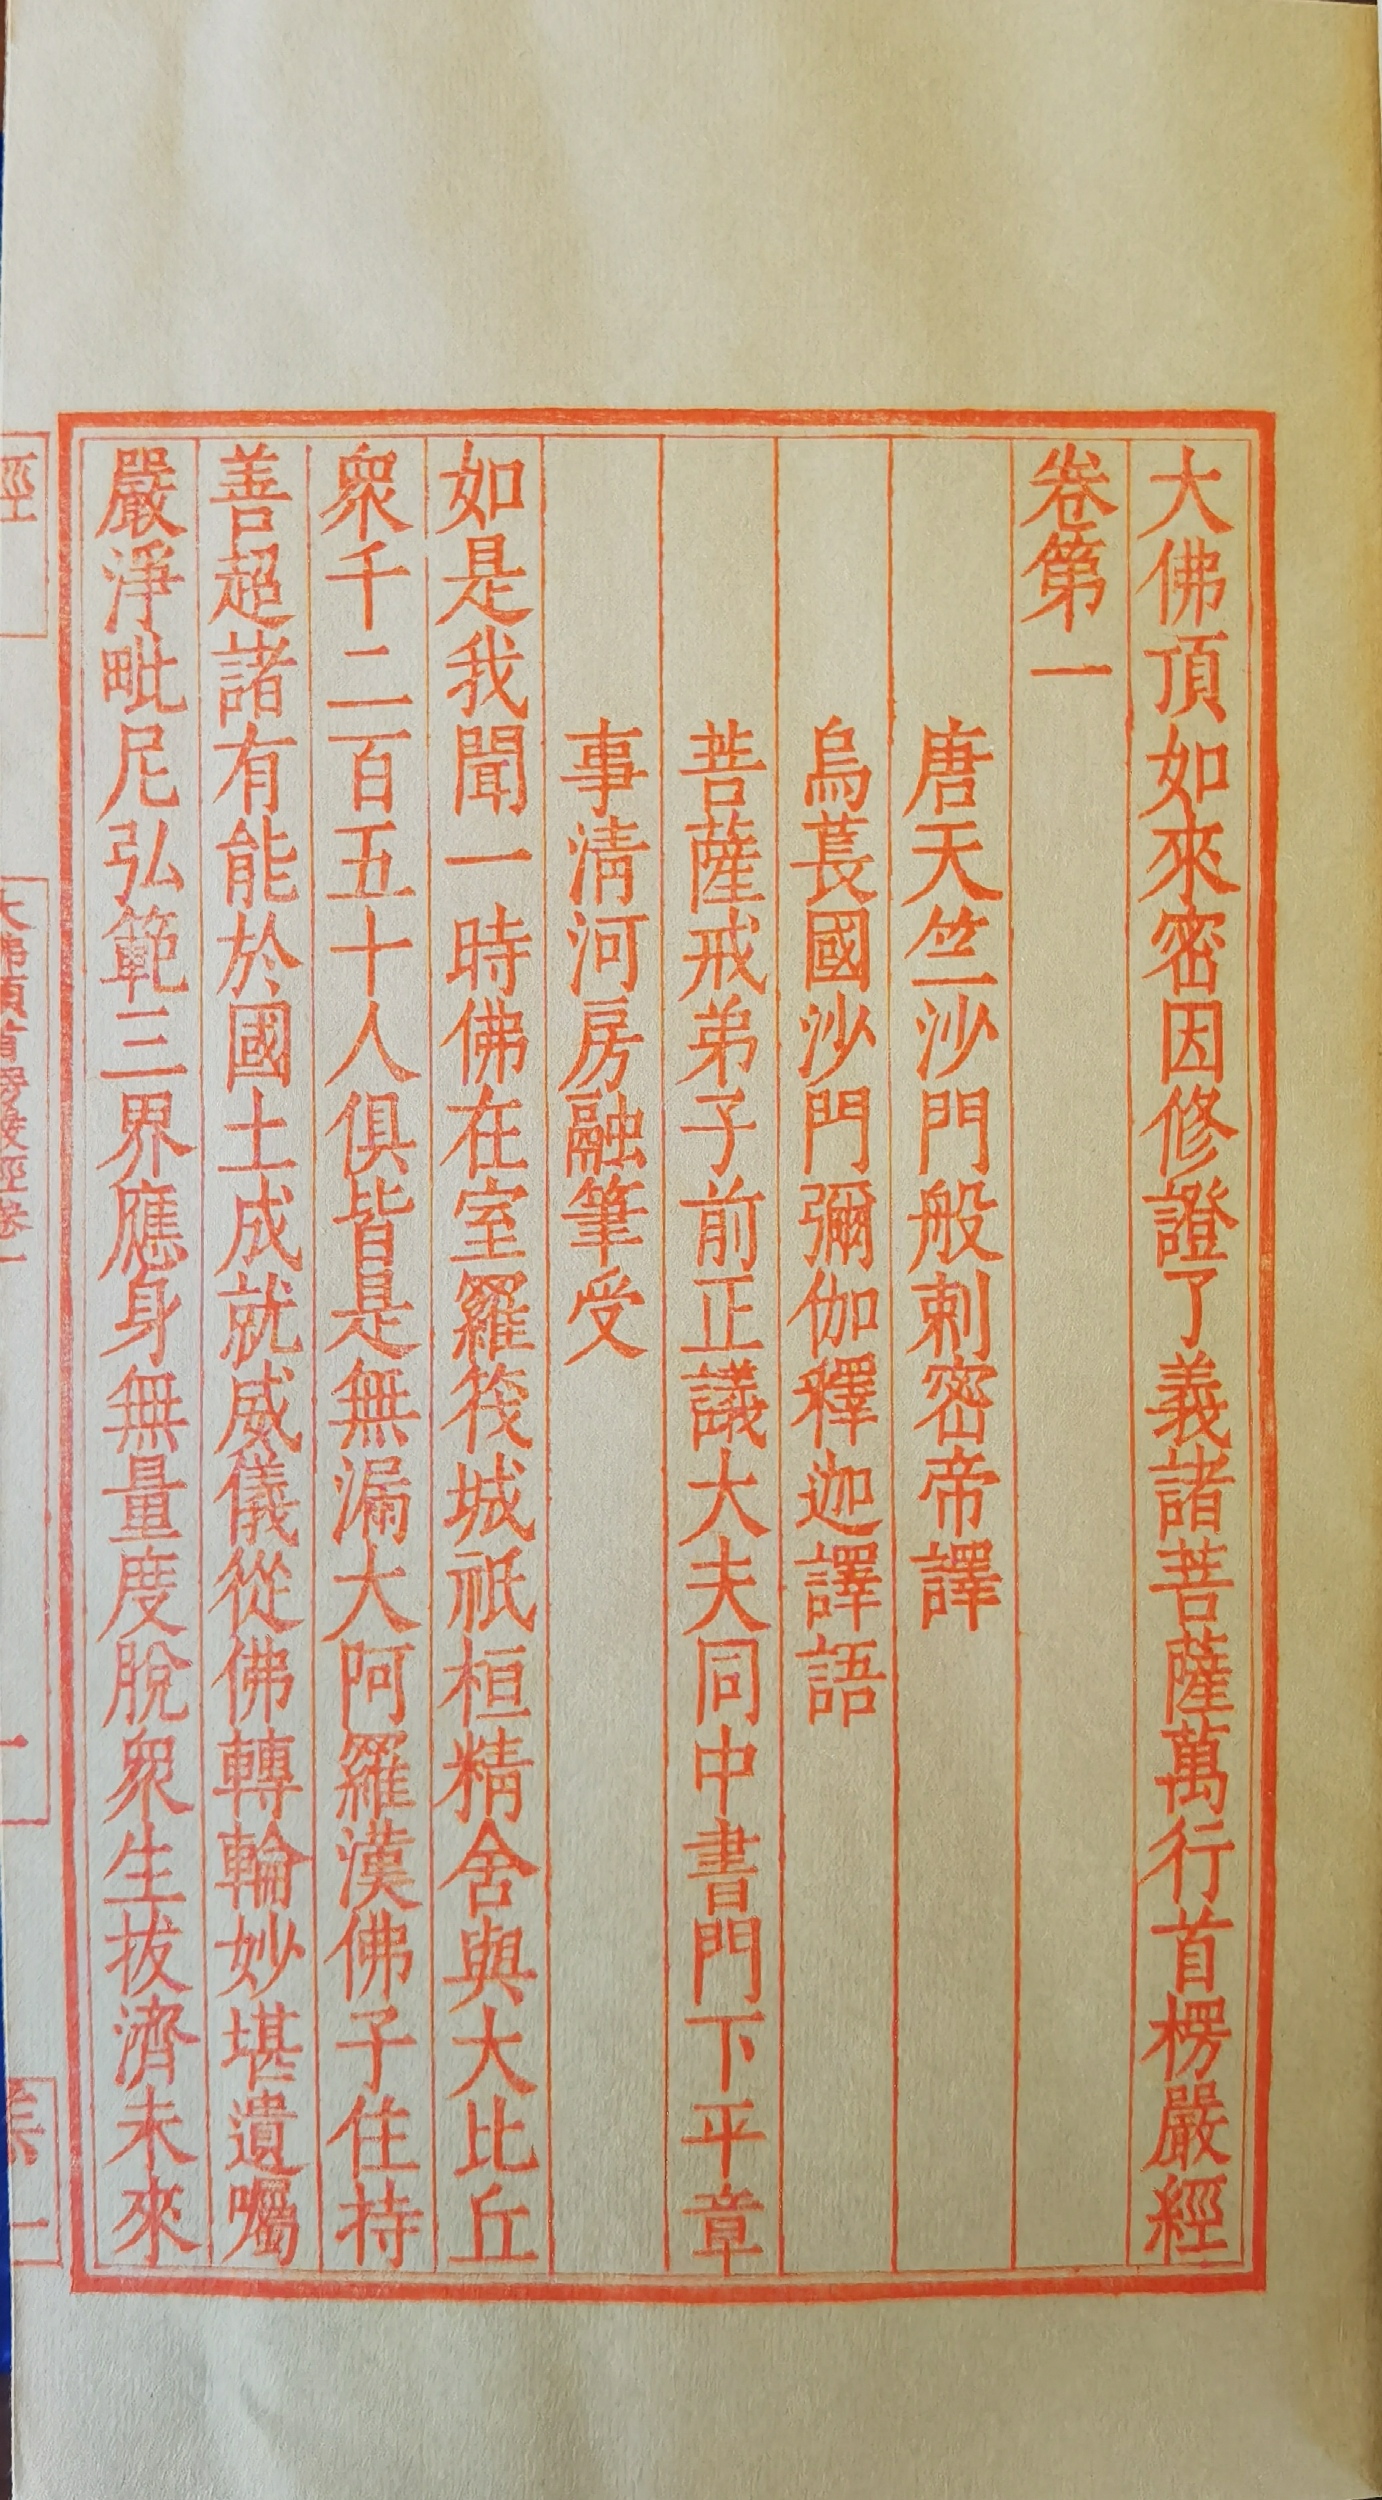 大佛頂如來密因修證了義諸菩薩萬行首楞嚴經
卷第一
唐天竺沙門般剌密帝譯
烏萇國沙門彌伽釋迦譯語
菩薩戒弟子前正議大夫同中書門下平章
事清河房融筆受
如是我聞一時佛在室羅筏城祇桓精舍與大比丘
衆千二百五十人俱皆是無漏大阿羅漢佛子住持
善超諸有能於國土成就威儀從佛轉輪妙堪遺囑
嚴淨毗尼弘範三界應身無量度脫衆生拔濟未來
經
大佛頂首楞嚴經卷一
一